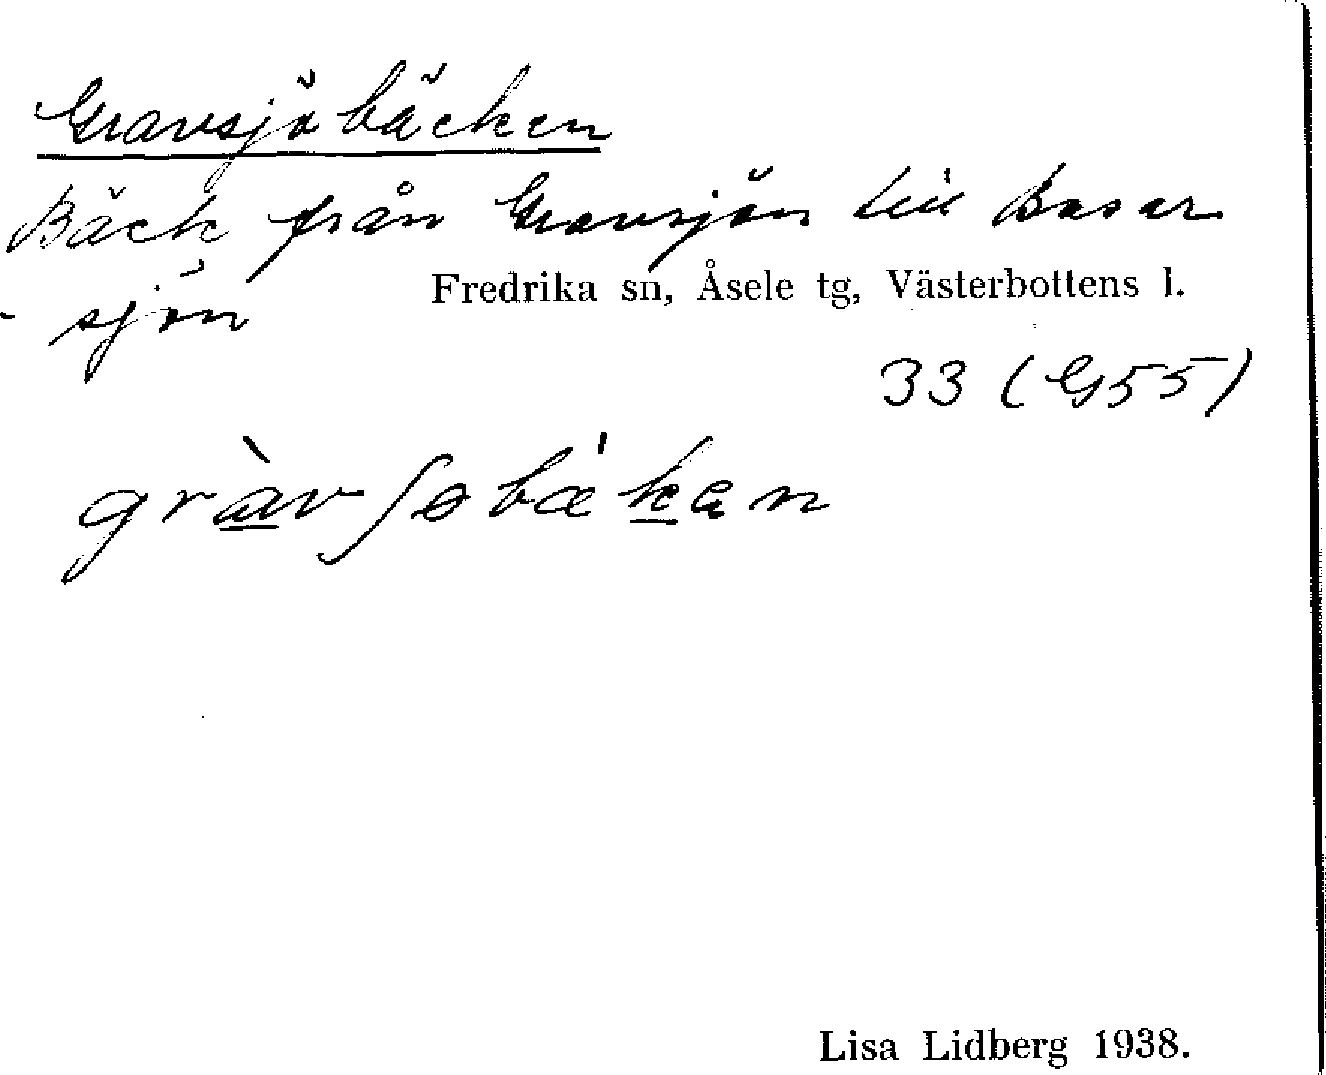 Gravsjöbäcken
Bäck från Gravsjön till Baser
-sjön
Fredrika sn, Åsele tg, Västerbottens l.
33 (G55)
gràvʃɵbæ'kan
Lisa Lidberg 1938.